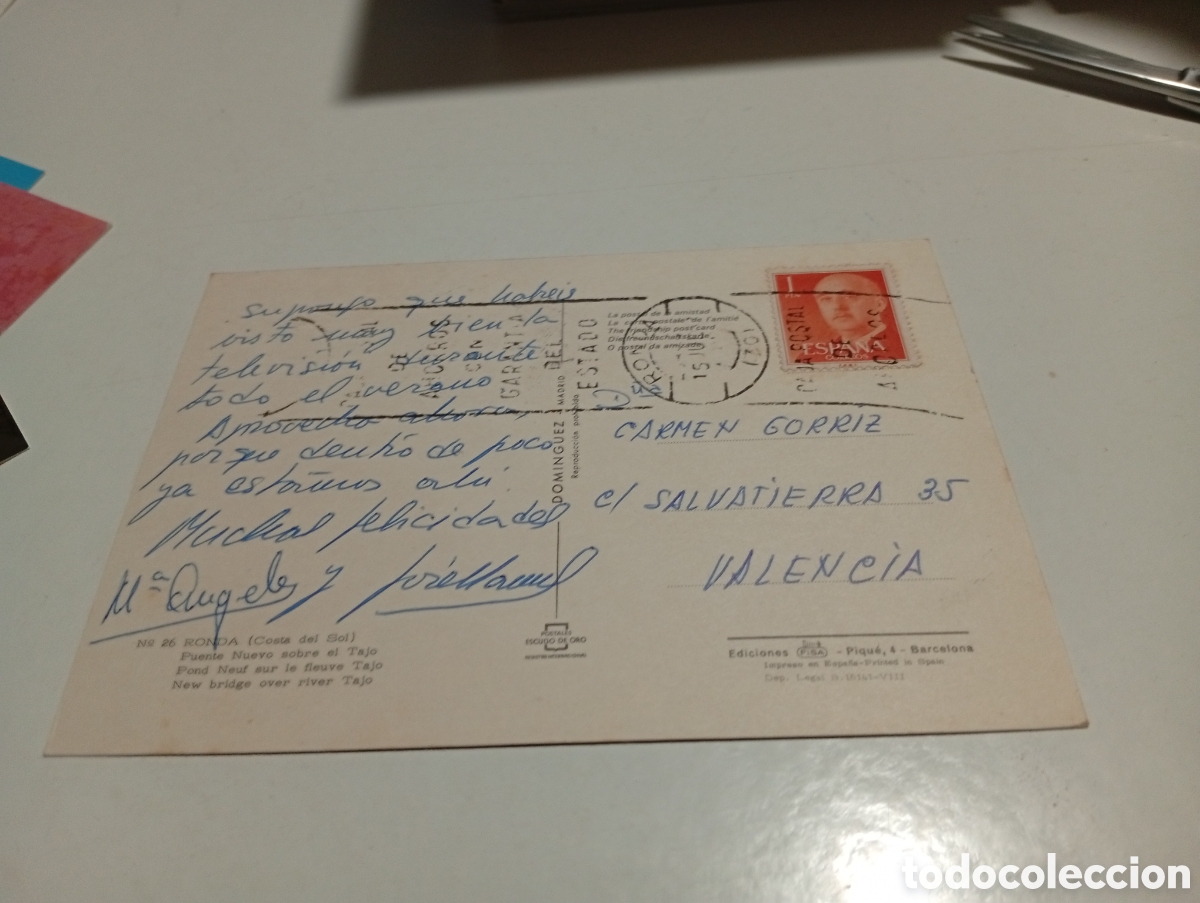 supongo que habeis
visto muy bien la
televisión durante
todo el verano
Aprovecha ahora,
porque dentro de poco
ya estamos ahí.
Muchas felicidades
Mª Angeles y José Manuel
Nº 26 RONDA (Costa del Sol)
Puente Nuevo sobre el Tajo
Pond Neuf sur le fleuve Tajo
New bridge over river Tajo
DOMINGUEZ MADRID
Reproducción prohibida
POSTALES
ESCUDO DE ORO
La postal de la amistad
La carte postale de l'amitié
The friendship post card
Die freundschaftskarte
O postal da amizade
CAJA POSTAL
DE
AHORROS
CON
GARANTIA
DEL
ESTADO
RONDA
15 JU
1 PTA
ESPAÑA
CORREOS
CAJA POSTAL
DE
AHORROS
CARMEN GORRIZ
c/ SALVATIERRA 35
VALENCIA
Ediciones FISA - Piqué, 4 - Barcelona
Impreso en España-Printed in Spain
todocoleccion